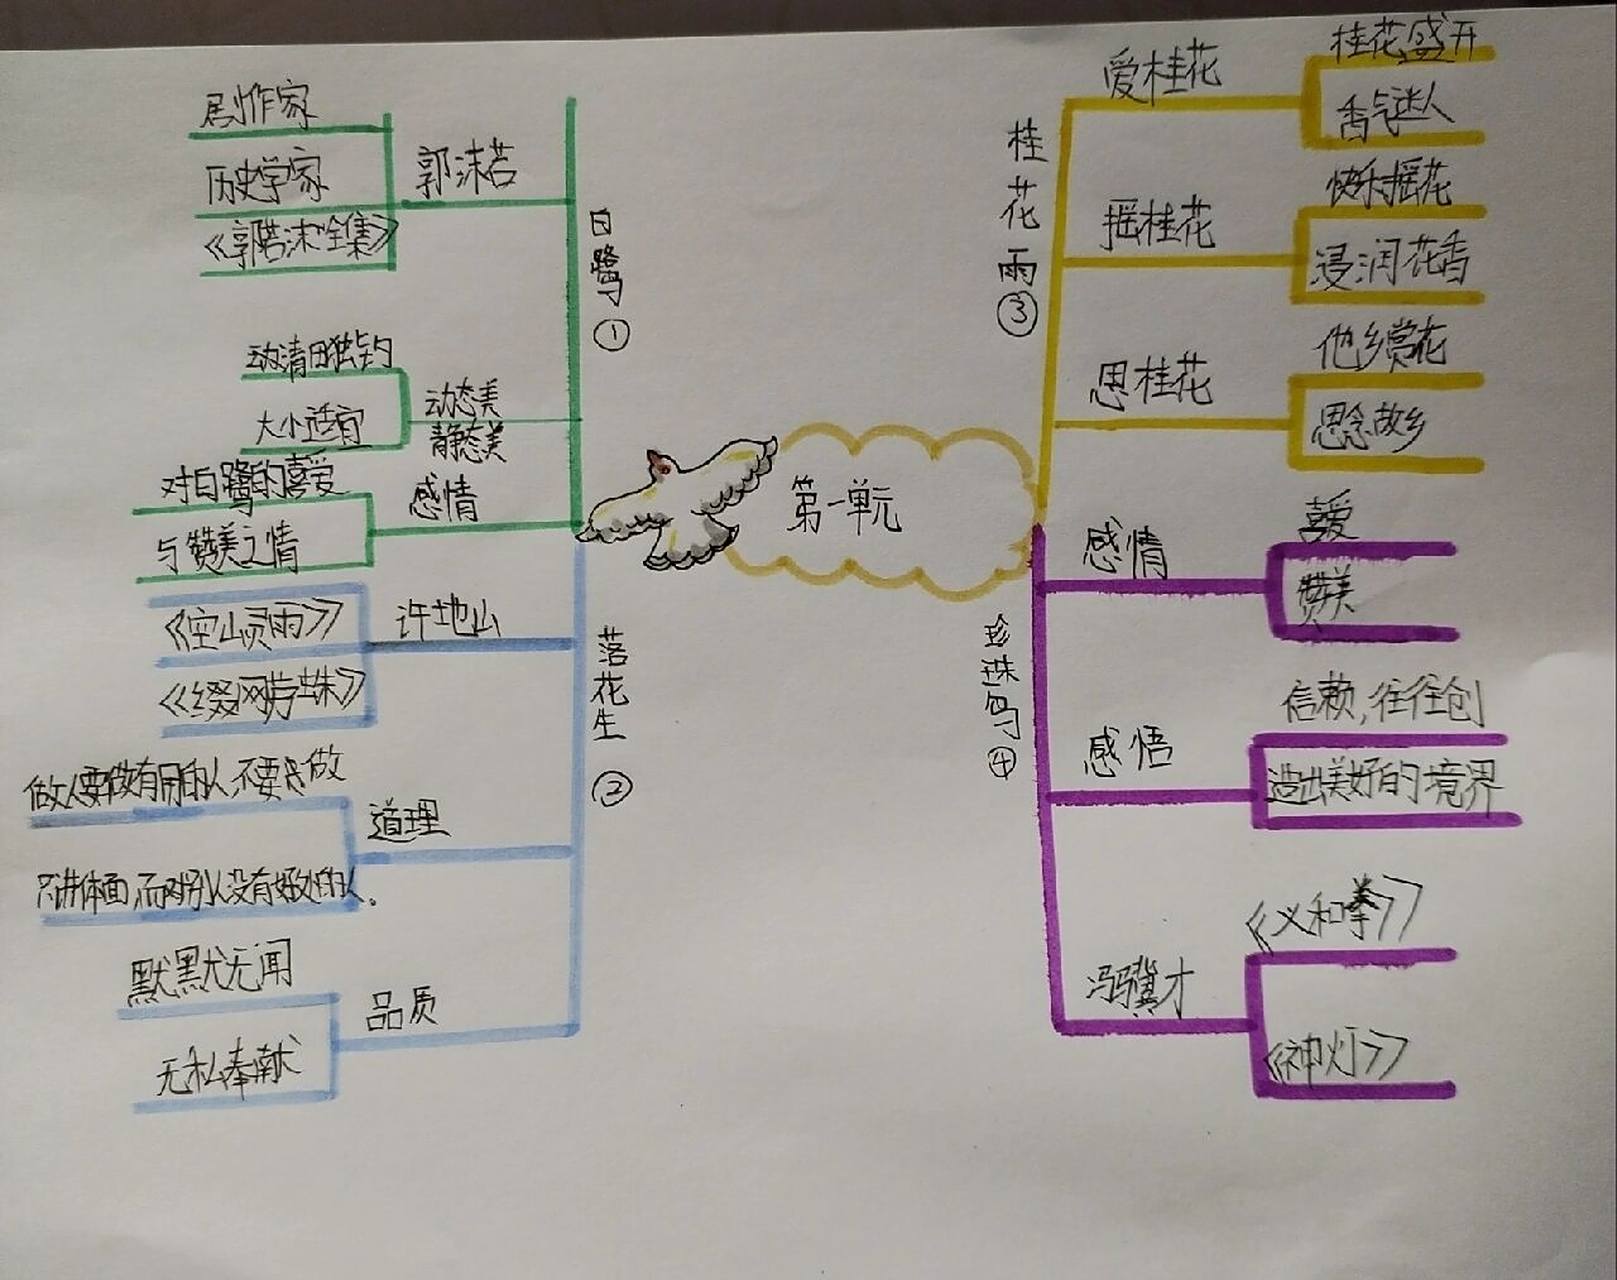 第一单元
白鹭①
郭沫若
剧作家
历史学家
《郭若沫全集》
动态美
静态美
动清田独钓
大小适宜
感情
对白鹭的喜爱
与赞美之情
落花生②
许地山
《空山灵雨》
《缀网劳蛛》
道理
做人要做有用的人,不要只做
只讲体面,而对别人没有好处的人。
品质
默默无闻
无私奉献
桂花雨③
爱桂花
桂花盛开
香气迷人
摇桂花
快乐摇花
浸润花香
思桂花
他乡赏花
思念故乡
珍珠鸟④
感情
喜爱
赞美
感悟
信赖,往往创
造出美好的境界
冯骥才
《义和拳》
《神灯》